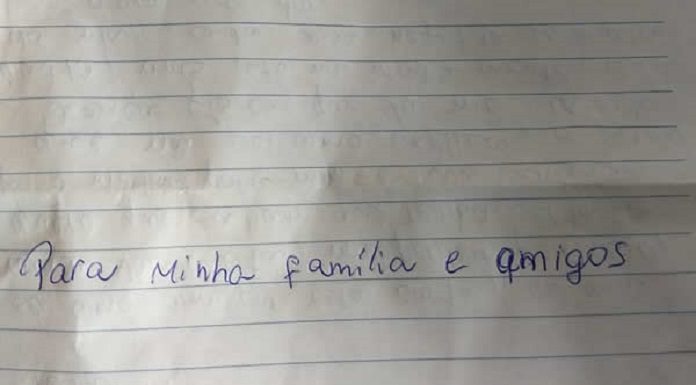 Para Minha família e amigos